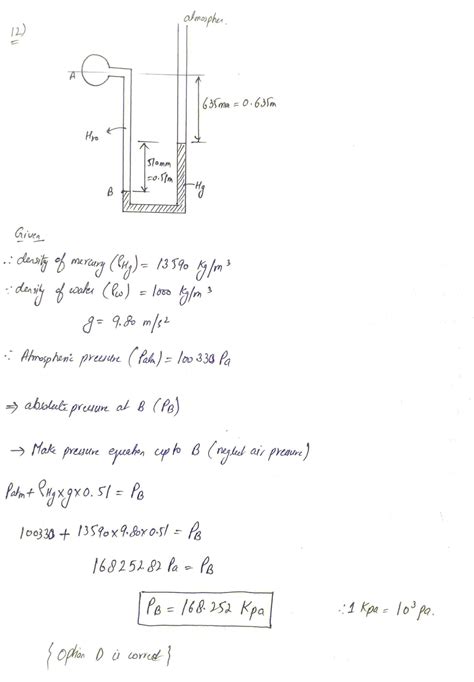 12)
atmospher.
A
635mm = 0.635m
H20
510mm
=0.51m
B
Hg
Given
∴ density of mercury (ρHg) = 13590 Kg/m³
∵ density of water (ρw) = 1000 Kg/m³
g = 9.80 m/s²
∴ Atmospheric pressure (Patm) = 100330 Pa
⇒ absolute pressure at B (PB)
→ Make pressure equation upto B (neglect air pressure)
Patm + ρHg x g x 0.51 = PB
100330 + 13590 x 9.80 x 0.51 = PB
16825282 Pa = PB
PB = 168.252 Kpa
∴ 1 Kpa = 10³ pa.
{ Option D is correct }